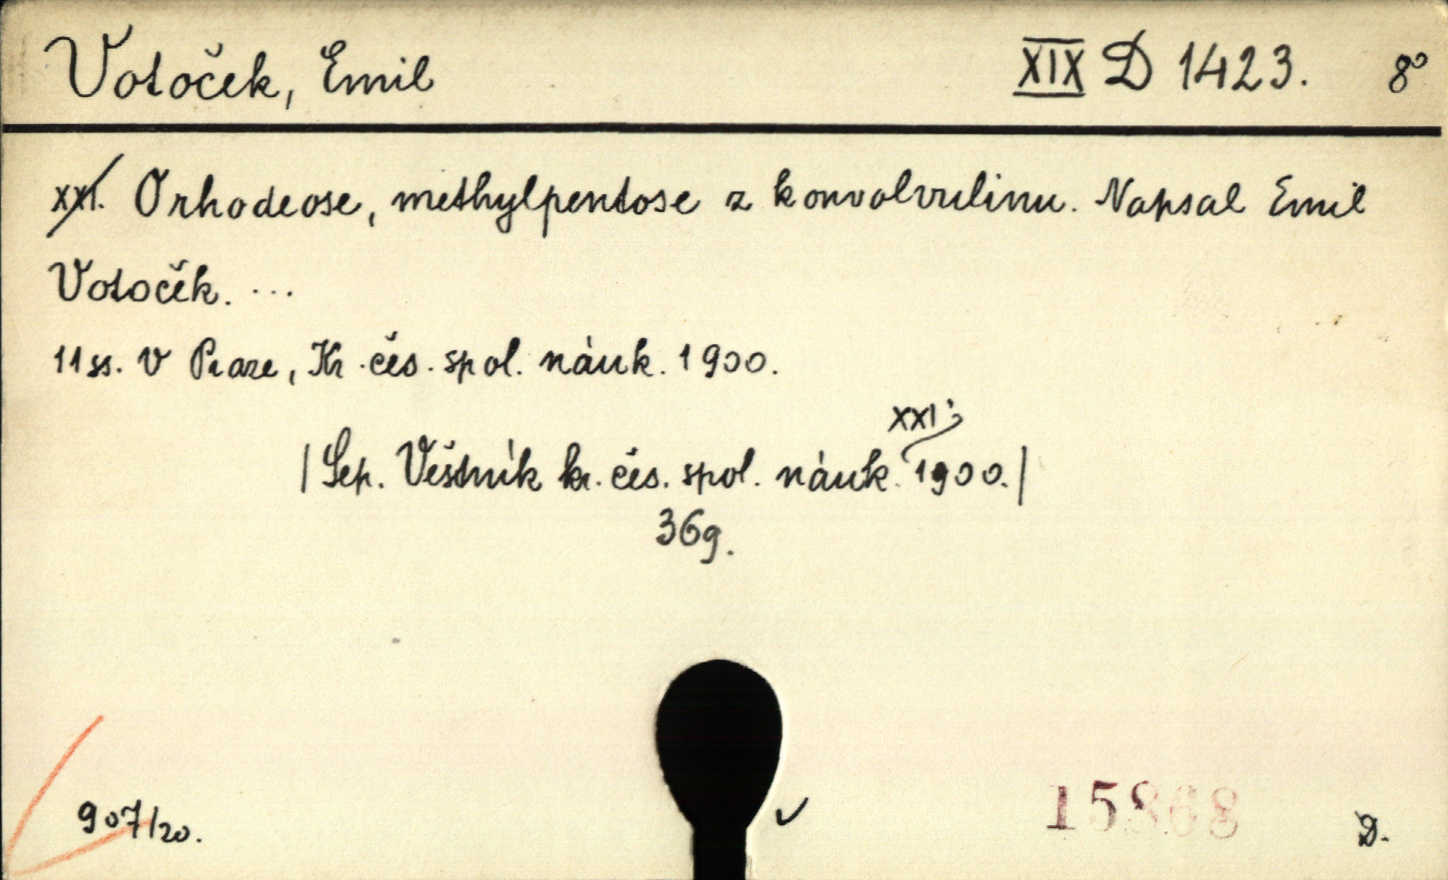 Votoček, Emil XIX D 1423. 8°
XXI. O rhodeose, methylpentose z konvolvulinu. Napsal Emil
Votoček. ...
11 ss. V Praze, Kr. čes. spol. náuk. 1900.
XXI;
|Sep. Věstník kr. čes. spol. náuk. 1900.|
369.
907/20. 15868 D.